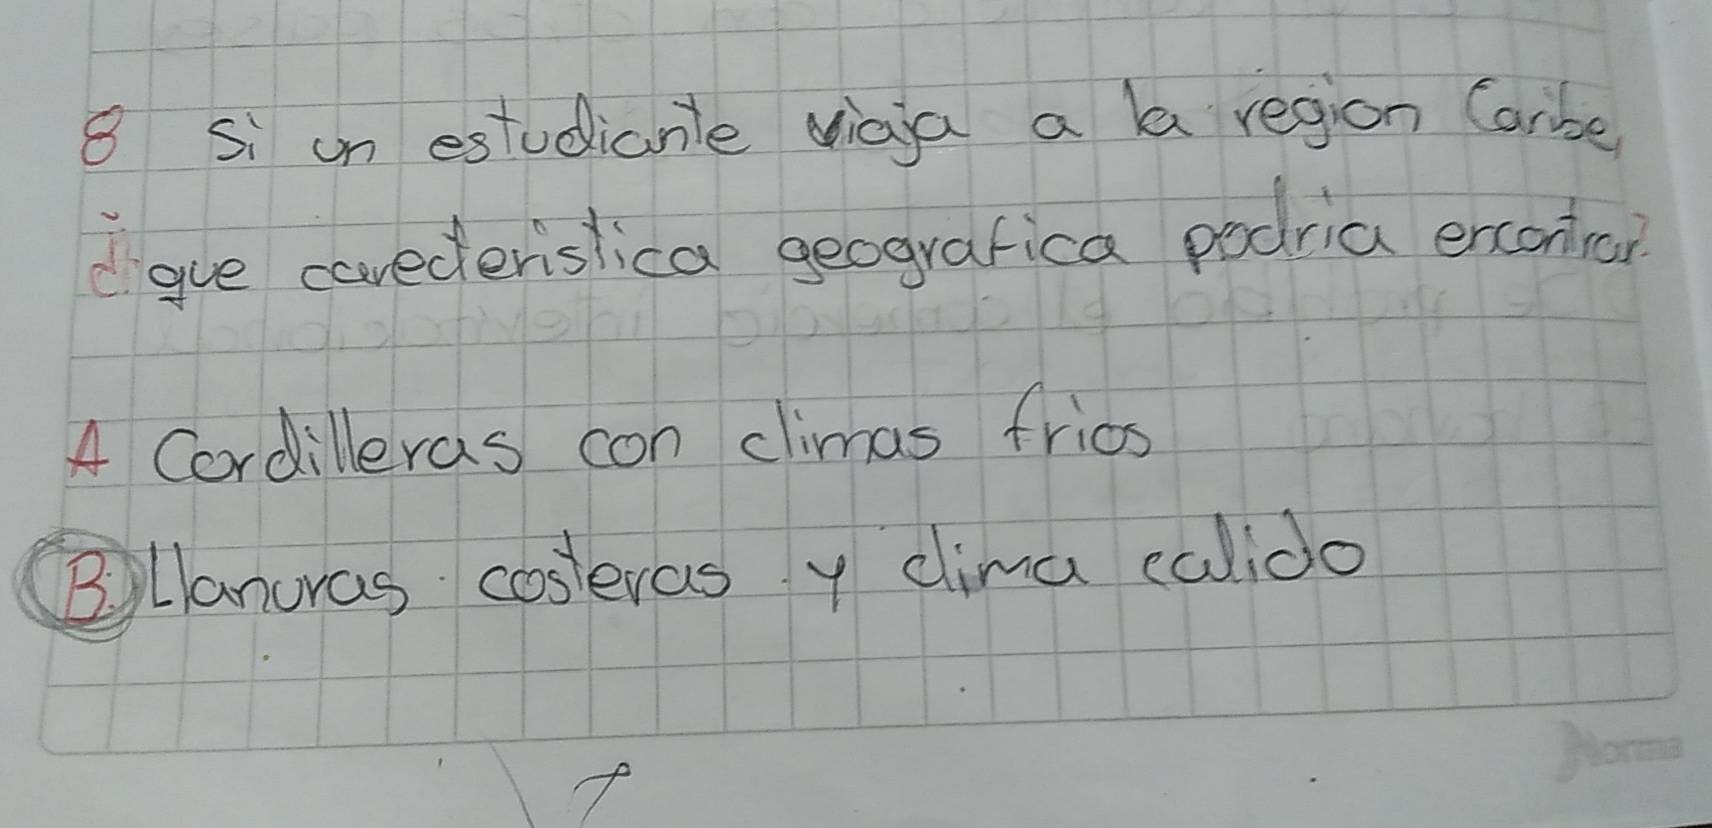 8 Si un estudiante viaja a la region Caribe,
¿que carecteristica geografica podria encontrar?
A Cordilleras con climas frios
B. Llanuras costeras y clima calido
Norma